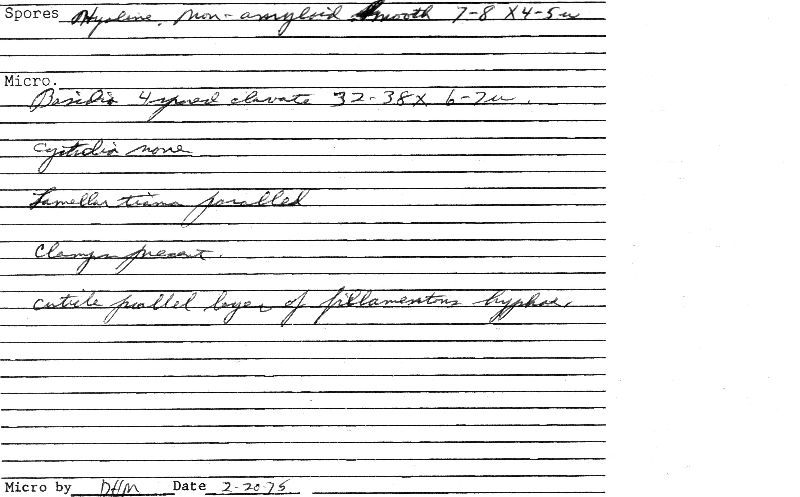 Spores Hyaline, non-amyloid smooth 7-8 X 4-5u
Micro.
Basidia 4 spored clavate 32-38 X 6-7u.
Cystidia none
Lamellar trama paralled
Clamps present.
cuticle parallel layer of fillamentous hyphae.
Micro by DHM Date 2-20-75